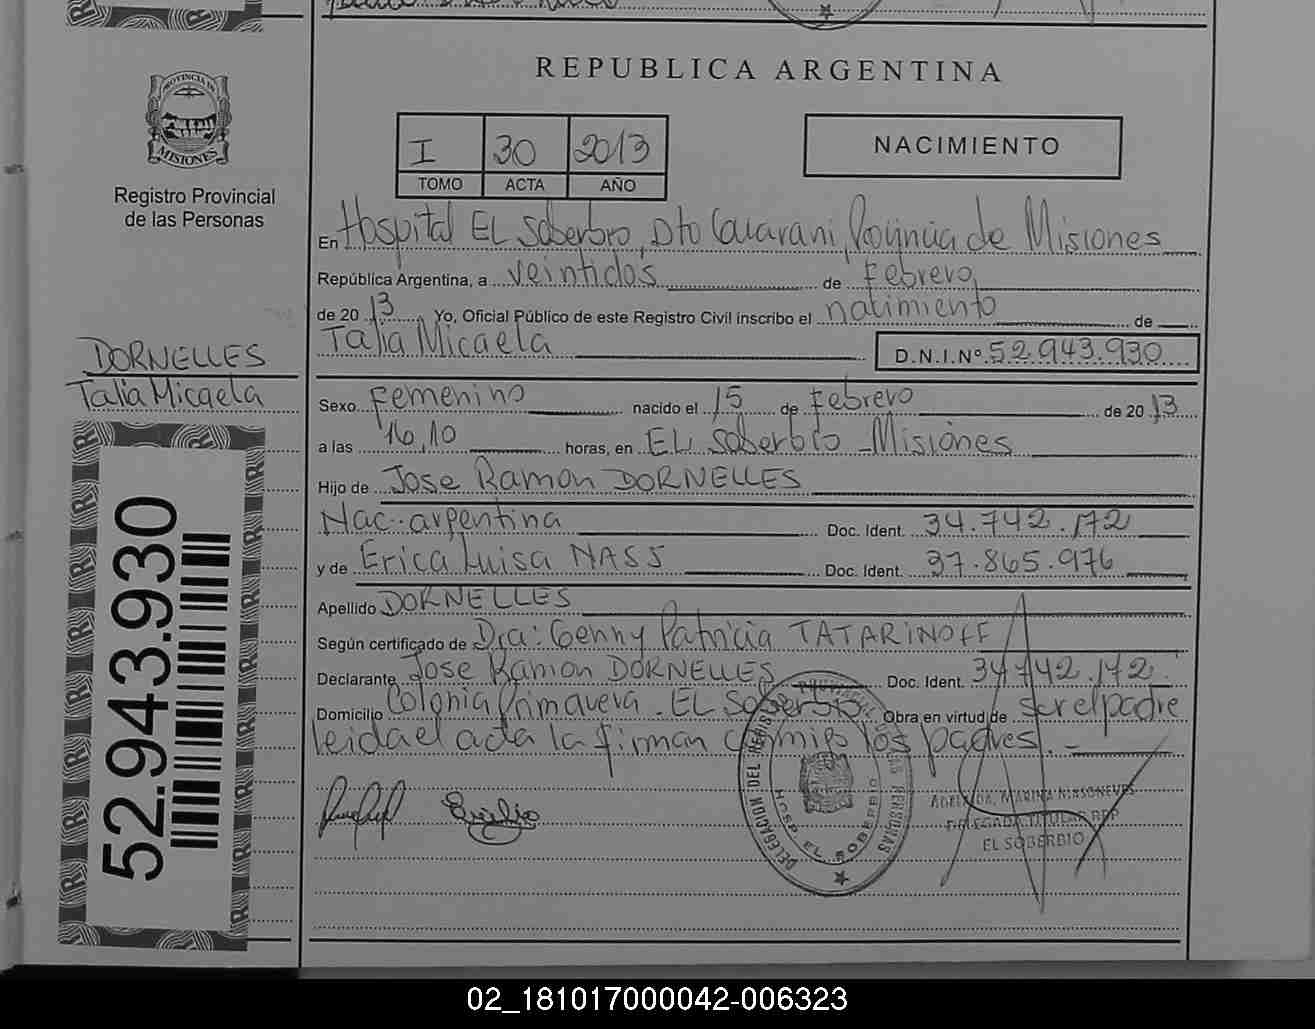 REPUBLICA ARGENTINA
PROVINCIA DE
MISIONES
Registro Provincial
de las Personas
I 30 2013
TOMO ACTA AÑO
NACIMIENTO
En Hospital EL Soberbio, Dto Guarani, Provincia de Misiones
República Argentina, a veintidos de Febrero
de 20 13 Yo, Oficial Público de este Registro Civil inscribo el nacimiento de
Talia Micaela D.N.I.Nº 52.943.930
DORNELLES
Talia Micaela
Sexo femenino nacido el 15 de Febrero de 20 13
a las 16,10 horas, en EL Soberbio - Misiones
Hijo de Jose Ramon DORNELLES
Nac. argentina Doc. Ident. 34.742.172
y de Erica Luisa NASS Doc. Ident. 37.865.976
Apellido DORNELLES
Según certificado de Dra: Genny Patricia TATARINOFF
Declarante Jose Ramon DORNELLES Doc. Ident. 34742.172.
Domicilio Colonia Primavera. EL Soberbio. Obra en virtud de ser el padre
leida el acta la firman conmigo los padres. -
52.943.930
DELEGACION DEL REGISTRO PROVINCIAL DE LAS PERSONAS
HOSP. EL SOBERBIO
MARINA
DELEGADA TITULAR RPP
EL SOBERBIO
02_181017000042-006323